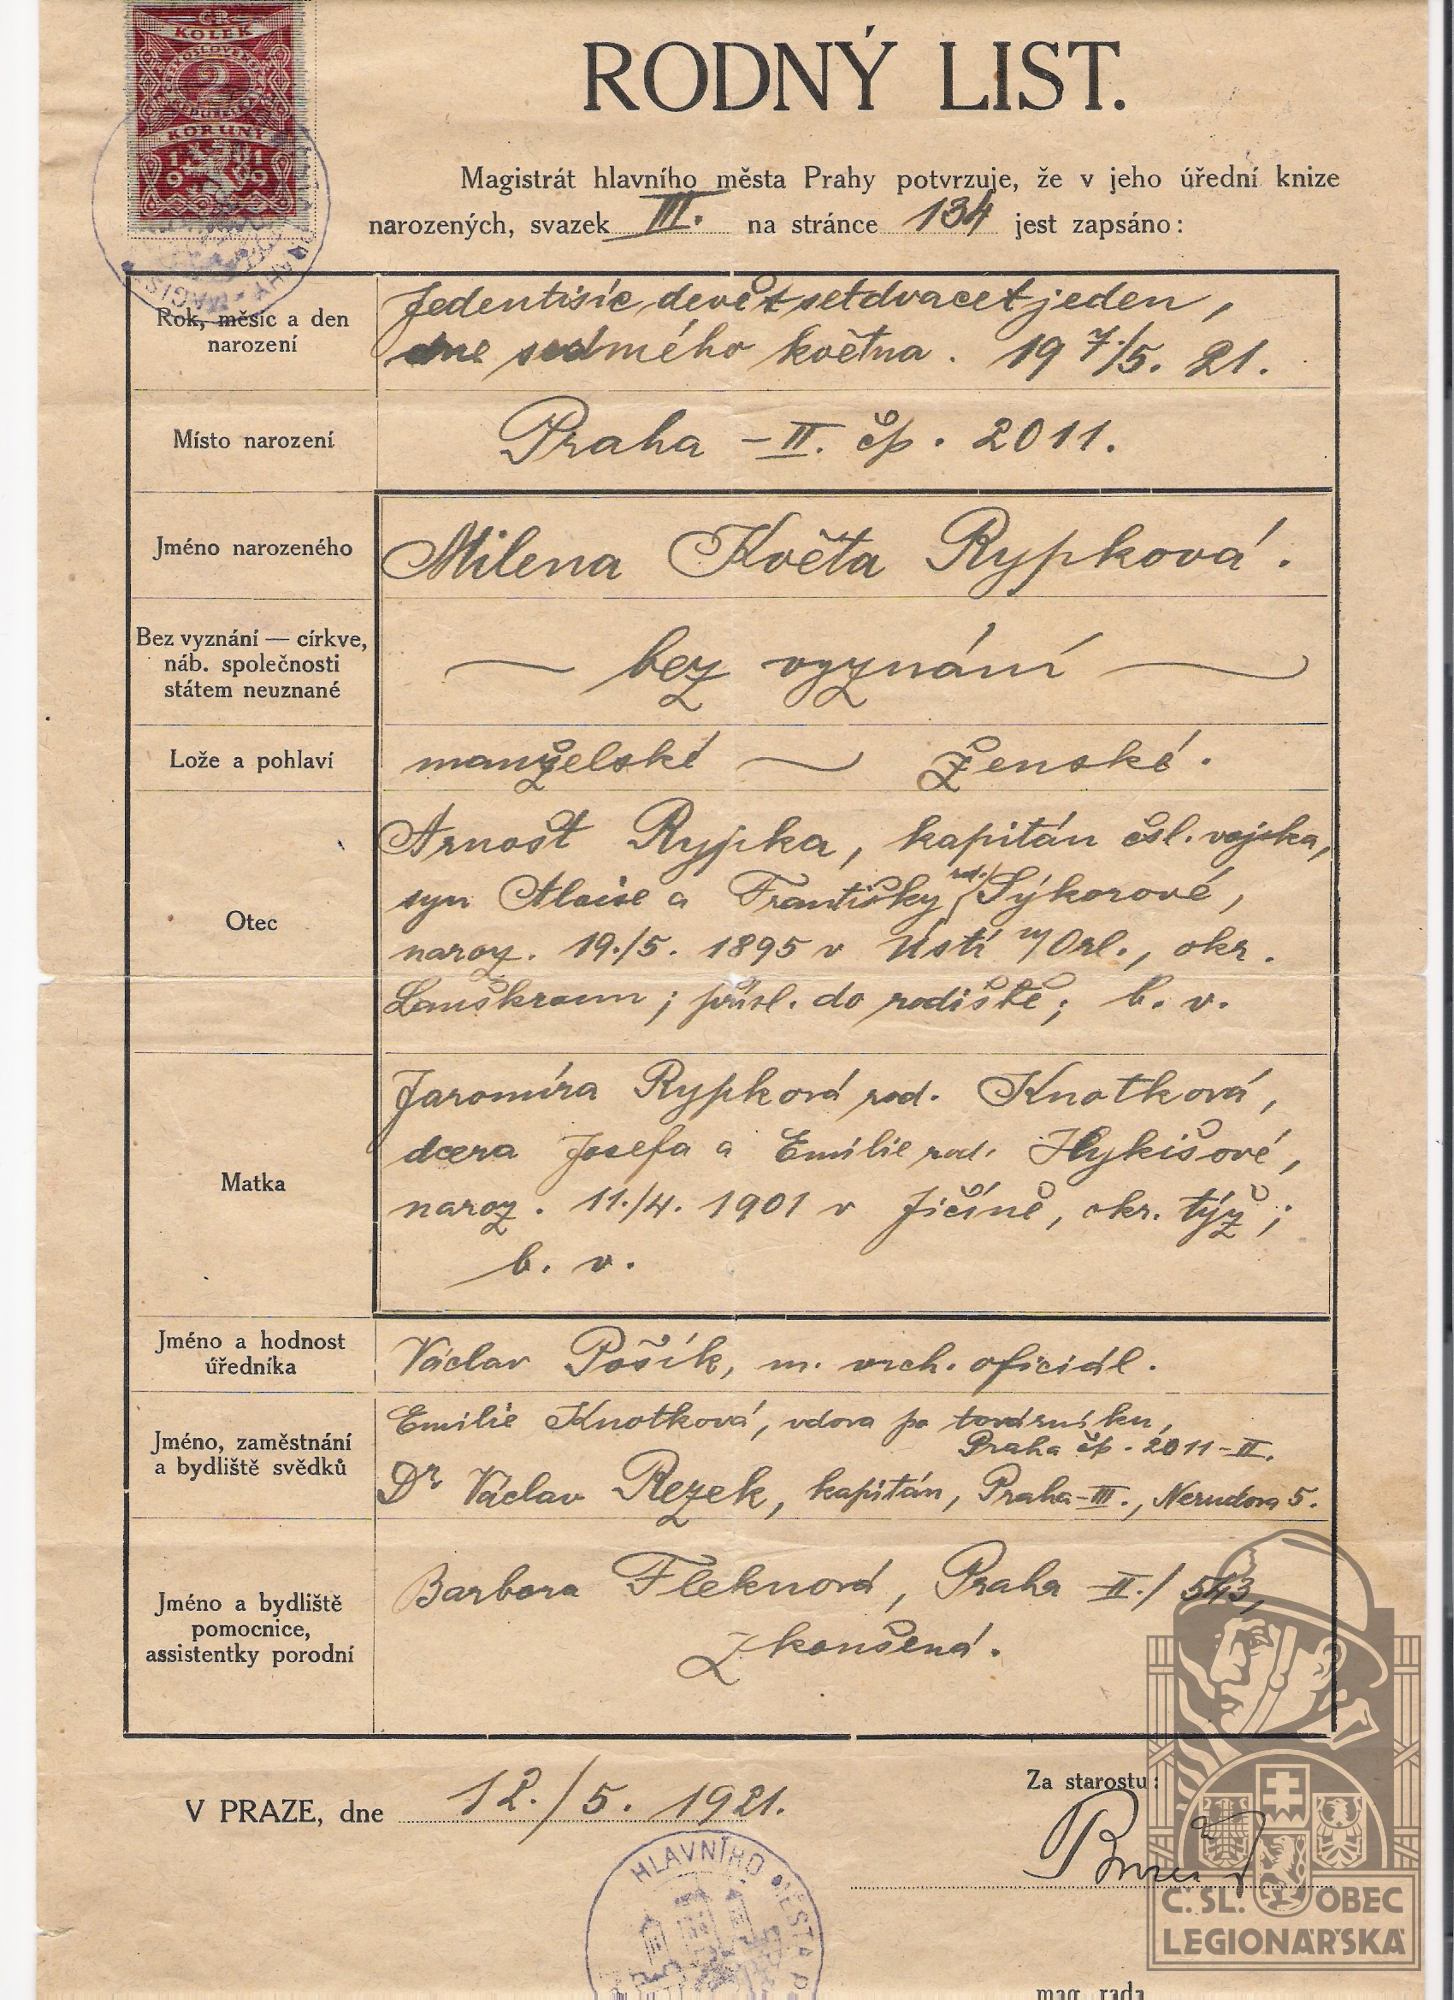 ČR
KOLEK
2
KORUNY
1919
RODNÝ LIST.
Magistrát hlavního města Prahy potvrzuje, že v jeho úřední knize
narozených, svazek III. na stránce 134 jest zapsáno:
Rok, měsíc a den
narození
Jedentisíc devětsetdvacetjeden,
dne sedmého května. 19 7/5. 21.
Místo narození
Praha – II. čp. 2011.
Jméno narozeného
Milena Květa Rypková.
Bez vyznání — církve,
náb. společnosti
státem neuznané
bez vyznání
Lože a pohlaví
manželské ženské.
Otec
Arnošt Rypka, kapitán čsl. vojska,
syn Aloise a Františky rod. Sýkorové,
naroz. 19./5. 1895 v Ústí n/Orl., okr.
Lanškroun; přísl. do rodiště; b. v.
Matka
Jaromíra Rypková rod. Knotková,
dcera Josefa a Emilie rod. Hykišové,
naroz. 11./4. 1901 v Jičíně, okr. týž;
b. v.
Jméno a hodnost
úředníka
Václav Pošík, m. vrch. oficiál.
Jméno, zaměstnání
a bydliště svědků
Emilie Knotková, vdova po továrníku,
Praha čp. 2011-II.
Dr Václav Rezek, kapitán, Praha-III., Nerudova 5.
Jméno a bydliště
pomocnice,
assistentky porodní
Barbora Fleknová, Praha II./543,
zkoušená.
V PRAZE, dne 12./5. 1921.
Za starostu:
HLAVNÍHO MĚSTA P
Č. SL. OBEC
LEGIONÁŘSKÁ
mag. rada